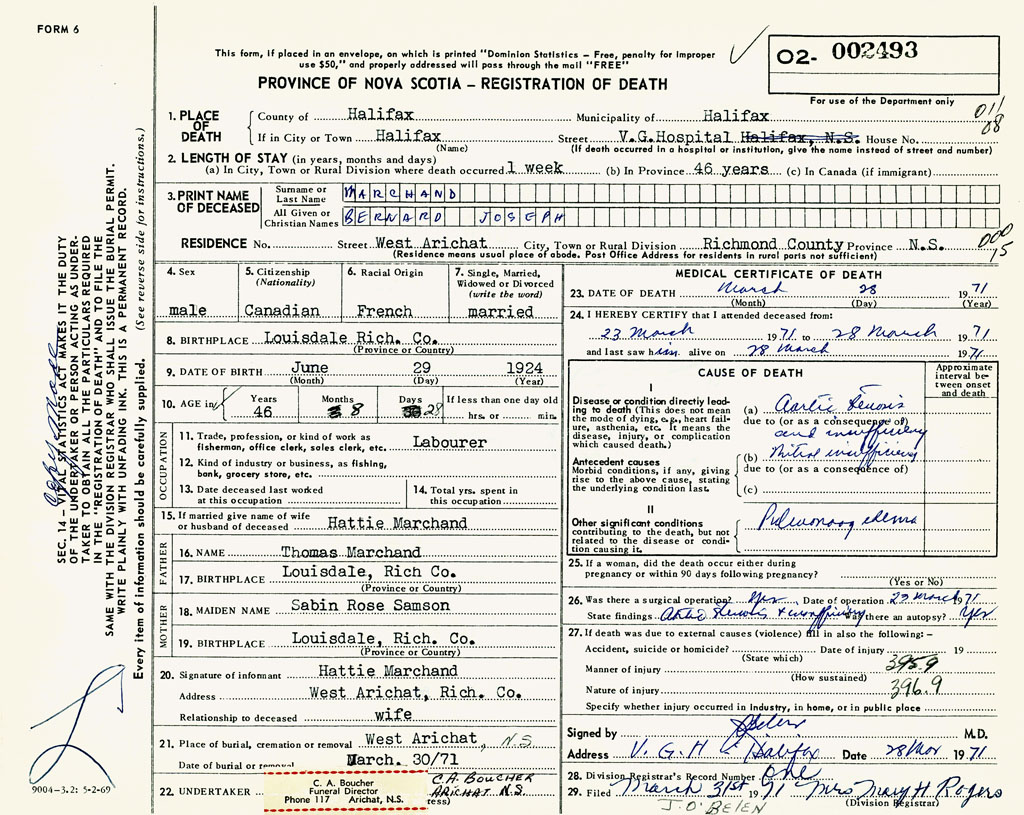 FORM 6
This form, if placed in an envelope, on which is printed "Dominion Statistics – Free, penalty for improper
use $50," and properly addressed will pass through the mail "FREE"
PROVINCE OF NOVA SCOTIA – REGISTRATION OF DEATH
O2- 002493
For use of the Department only
011
08
1. PLACE OF DEATH
County of Halifax Municipality of Halifax
If in City or Town Halifax Street V.G.Hospital Halifax, N.S. House No.
(Name) (If death occurred in a hospital or institution, give the name instead of street and number)
2. LENGTH OF STAY (in years, months and days)
(a) In City, Town or Rural Division where death occurred 1 week (b) In Province 46 years (c) In Canada (if immigrant)
3. PRINT NAME OF DECEASED
Surname or Last Name MARCHAND
All Given or Christian Names BERNARD JOSEPH
000
15
RESIDENCE No. Street West Arichat City, Town or Rural Division Richmond County Province N.S.
(Residence means usual place of abode. Post Office Address for residents in rural parts not sufficient)
4. Sex
male
5. Citizenship
(Nationality)
Canadian
6. Racial Origin
French
7. Single, Married,
Widowed or Divorced
(write the word)
married
8. BIRTHPLACE Louisdale Rich. Co.
(Province or Country)
9. DATE OF BIRTH June 29 1924
(Month) (Day) (Year)
10. AGE in Years Months Days If less than one day old
46 8 28 hrs. or min.
OCCUPATION
11. Trade, profession, or kind of work as
fisherman, office clerk, sales clerk, etc. Labourer
12. Kind of industry or business, as fishing,
bank, grocery store, etc.
13. Date deceased last worked
at this occupation
14. Total yrs. spent in
this occupation
15. If married give name of wife
or husband of deceased Hattie Marchand
FATHER
16. NAME Thomas Marchand
17. BIRTHPLACE Louisdale, Rich Co.
(Province or Country)
MOTHER
18. MAIDEN NAME Sabin Rose Samson
19. BIRTHPLACE Louisdale, Rich. Co.
(Province or Country)
20. Signature of informant Hattie Marchand
Address West Arichat, Rich. Co.
Relationship to deceased wife
21. Place of burial, cremation or removal West Arichat, N.S
Date of burial or removal March. 30/71
22. UNDERTAKER
C. A. Boucher
Funeral Director
Phone 117 Arichat, N.S.
C.A. BOUCHER
ARICHAT N.S.
ress)
MEDICAL CERTIFICATE OF DEATH
23. DATE OF DEATH March 28 1971
(Month) (Day) (Year)
24. I HEREBY CERTIFY that I attended deceased from:
23 March 1971 to 28 March 1971
and last saw him alive on 28 March 1971
CAUSE OF DEATH
Approximate
interval be-
tween onset
and death
I
Disease or condition directly lead-
ing to death (This does not mean
the mode of dying, e.g., heart fail-
ure, asthenia, etc. It means the
disease, injury, or complication
which caused death.)
(a) Aortic Stenosis
due to (or as a consequence of)
and insufficiency
Antecedent causes
Morbid conditions, if any, giving
rise to the above cause, stating
the underlying condition last.
(b) Mitral insufficiency
due to (or as a consequence of)
(c)
II
Other significant conditions
contributing to the death, but not
related to the disease or condi-
tion causing it.
Pulmonary edema
25. If a woman, did the death occur either during
pregnancy or within 90 days following pregnancy?
(Yes or No)
26. Was there a surgical operation? Yes Date of operation 27 March 1971
State findings Aortic Stenosis + insufficiency Was there an autopsy? Yes
27. If death was due to external causes (violence) fill in also the following: –
Accident, suicide or homicide? Date of injury 19
(State which)
Manner of injury 395.9
(How sustained)
Nature of injury 396.9
Specify whether injury occurred in industry, in home, or in public place
Signed by M.D.
Address V. G. H Halifax Date 28 Mar 1971
28. Division Registrar's Record Number One
29. Filed March 31st 1971 Mrs Mary H Rogers
(Division Registrar)
J. O'BEIEN
SEC. 14 – VITAL STATISTICS ACT MAKES IT THE DUTY
OF THE UNDERTAKER OR PERSON ACTING AS UNDER-
TAKER TO OBTAIN ALL THE PARTICULARS REQUIRED
IN THE "REGISTRATION OF DEATH" AND TO FILE THE
SAME WITH THE DIVISION REGISTRAR WHO SHALL ISSUE THE BURIAL PERMIT.
WRITE PLAINLY WITH UNFADING INK. THIS IS A PERMANENT RECORD.
Every item of information should be carefully supplied. (See reverse side for instructions.)
9004-3.2: 5-2-69